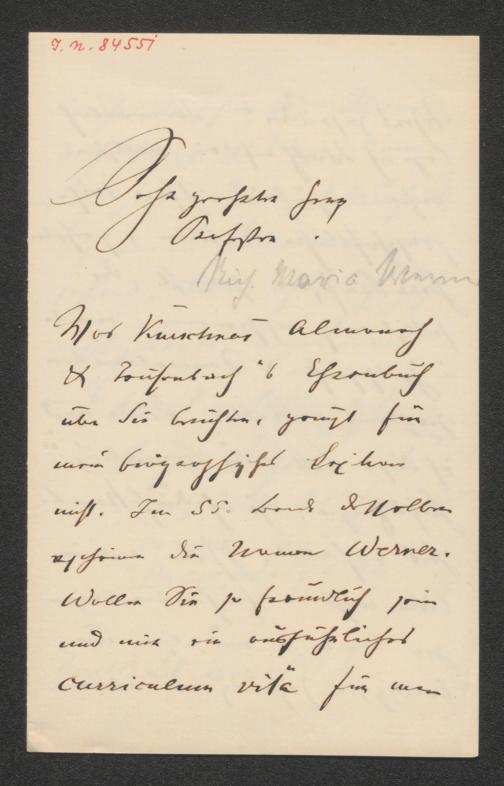 I. N. 84551
Sehr geehrter Herr
Professor.
Rich. Maria Werner
Was Kürschners Almanach
& "b Ehrenbuch
über Sie berichten, genügt für
mein biographisches Lexikon
nicht. Im 55. Bande desselben
erscheinen die Namen Werner.
Wollen Sie so freundlich sein
und mir ein ausführliches
curriculum vitä für mein